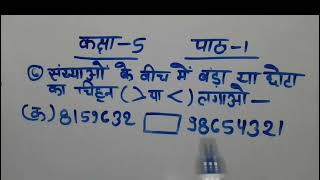 कक्षा-5 पाठ-1
⑥ संख्याओ के बीच में बड़ा या छोटा
का चिह्न (> या <) लगाओ—
(क) 8159632 □ 98654321